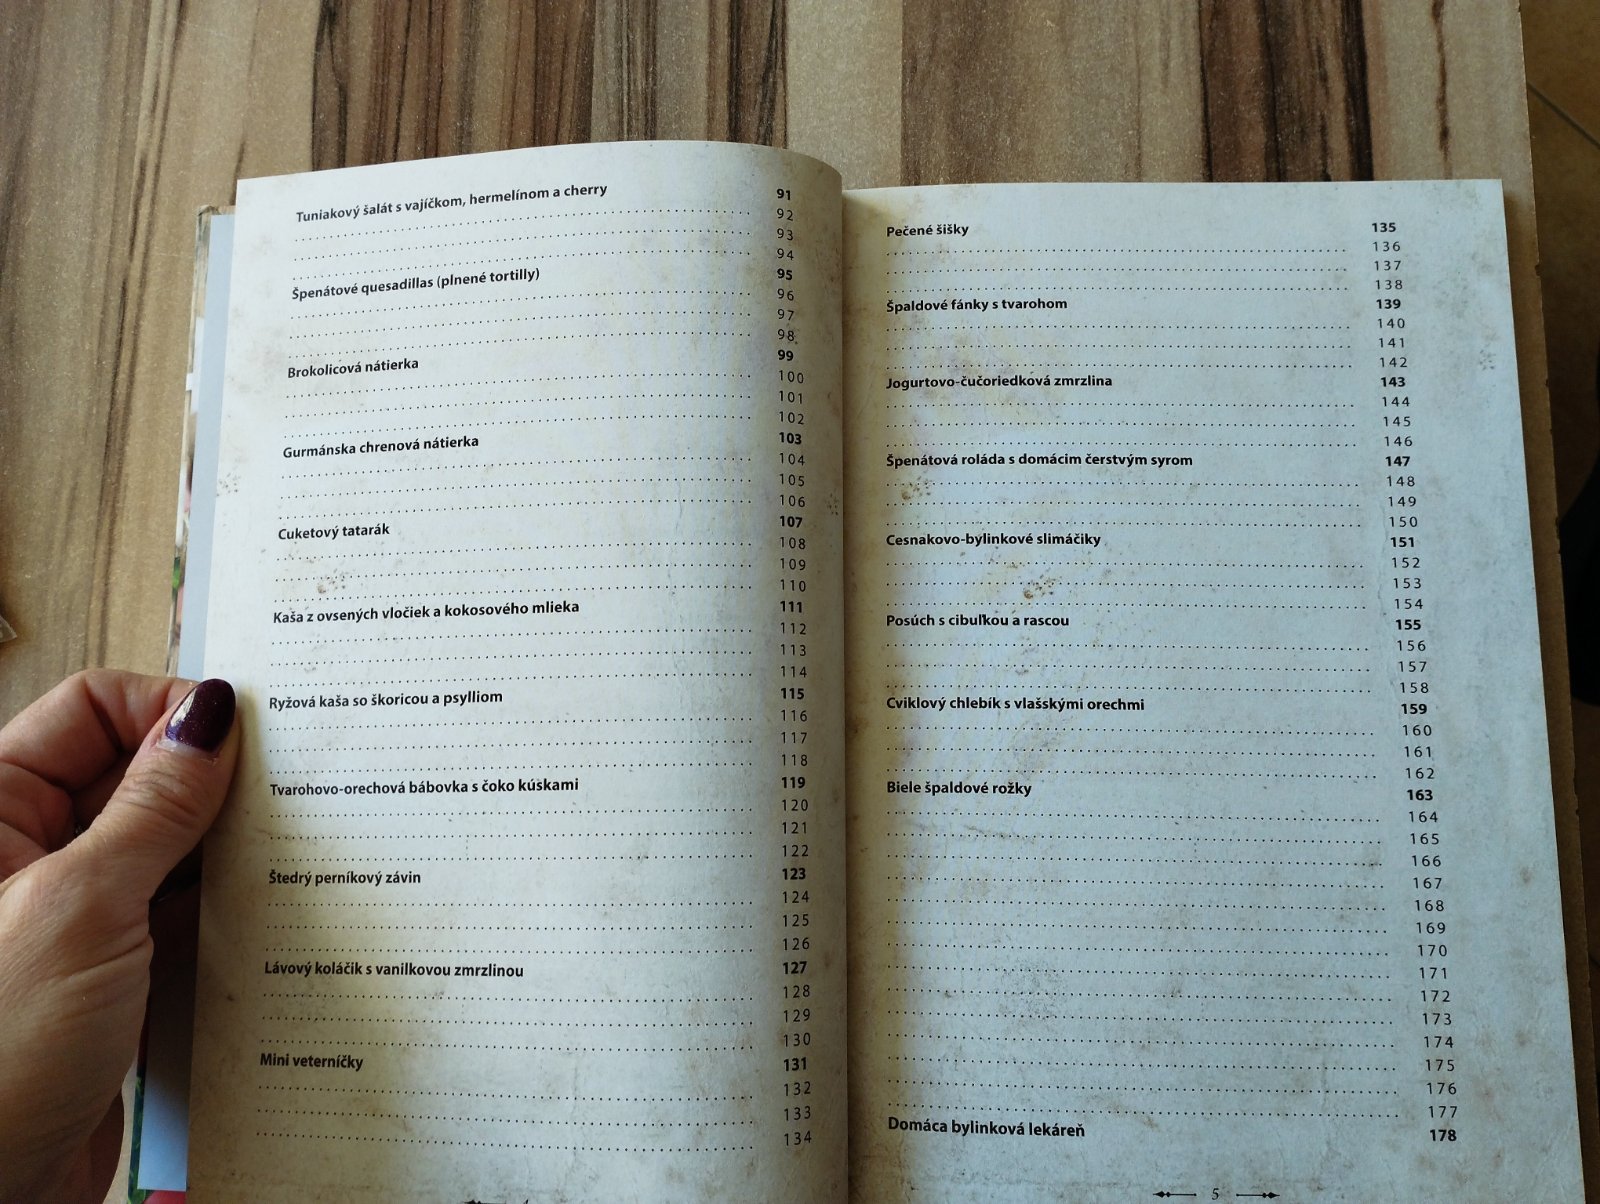 Tuniakový šalát s vajíčkom, hermelínom a cherry 91
92
93
94
Špenátové quesadillas (plnené tortilly) 95
96
97
98
Brokolicová nátierka 99
100
101
102
Gurmánska chrenová nátierka 103
104
105
106
Cuketový tatarák 107
108
109
110
Kaša z ovsených vločiek a kokosového mlieka 111
112
113
114
Ryžová kaša so škoricou a psylliom 115
116
117
118
Tvarohovo-orechová bábovka s čoko kúskami 119
120
121
122
Štedrý perníkový závin 123
124
125
126
Lávový koláčik s vanilkovou zmrzlinou 127
128
129
130
Mini veterníčky 131
132
133
134
Pečené šišky 135
136
137
138
Špaldové fánky s tvarohom 139
140
141
142
Jogurtovo-čučoriedková zmrzlina 143
144
145
146
Špenátová roláda s domácim čerstvým syrom 147
148
149
150
Cesnakovo-bylinkové slimáčiky 151
152
153
154
Posúch s cibuľkou a rascou 155
156
157
158
Cviklový chlebík s vlašskými orechmi 159
160
161
162
Biele špaldové rožky 163
164
165
166
167
168
169
170
171
172
173
174
175
176
177
Domáca bylinková lekáreň 178
5